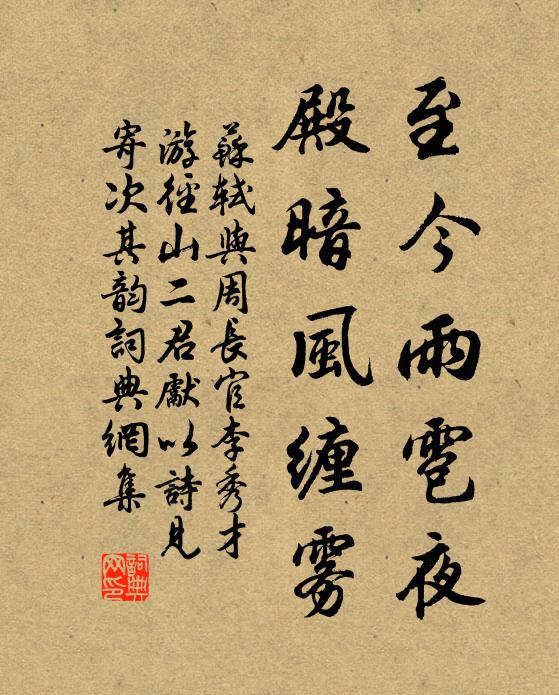 至今雨雹夜
殿暗風纏雾
蘇軾與周長官李秀才
游徑山二君獻以詩見
寄次其韵詞典網集
詞典
网印